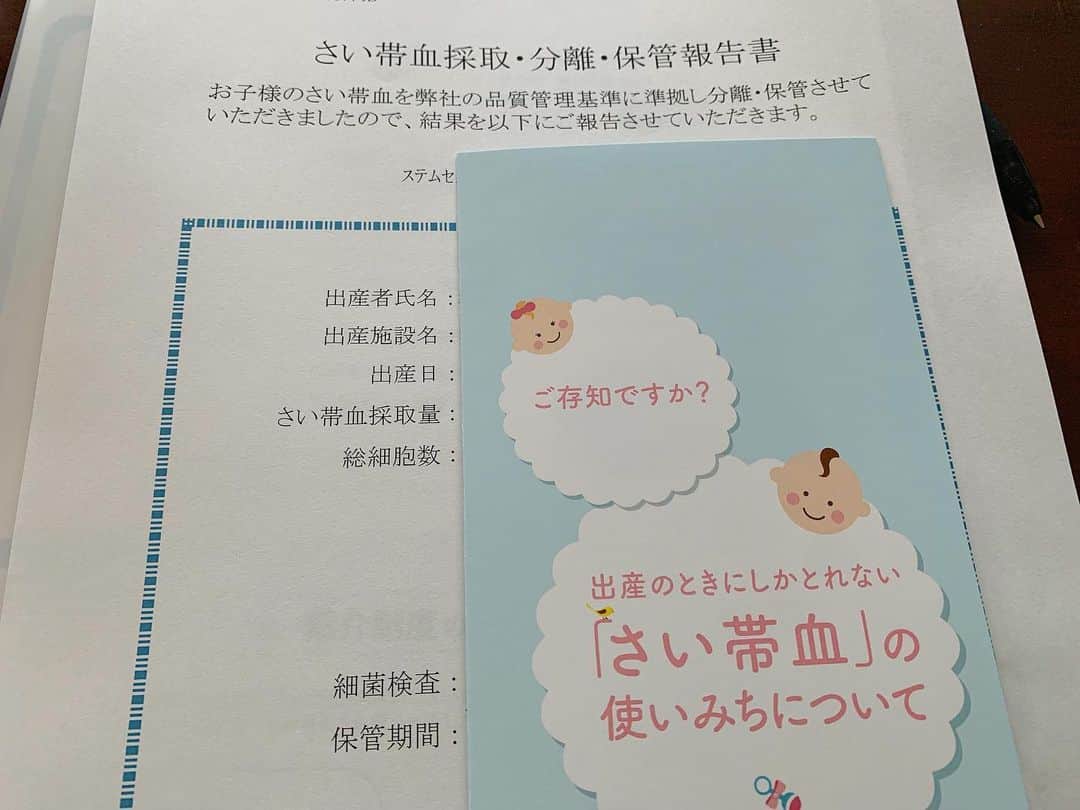 さい帯血採取・分離・保管報告書
お子様のさい帯血を弊社の品質管理基準に準拠し分離・保管させて
いただきましたので、結果を以下にご報告させていただきます。
ステムセ
出産者氏名：
出産施設名：
出産日：
さい帯血採取量：
総細胞数：
細菌検査：
保管期間：
ご存知ですか？
出産のときにしかとれない
「さい帯血」の
使いみちについて